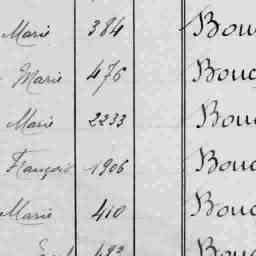 Marie 384 Bouc
Marie 476 Bouc
Marie 2233 Bouc
François 1906 Bouc
Marie 410 Bouc